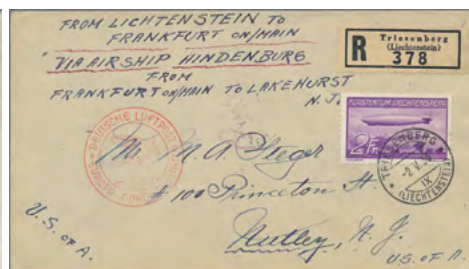 FROM LICHTENSTEIN TO
FRANKFURT ON/MAIN
VIA AIRSHIP HINDENBURG
FROM
FRANKFURT ON/MAIN TO LAKEHURST
N. J.
R
Triesenberg
(Liechtenstein)
378
FÜRSTENTUM LIECHTENSTEIN
2 Fr
TRIESENBERG
(LIECHTENSTEIN)
DEUSCHE LUFTPOST
Mr. M. A. Steger
# 100 Princeton St.
Nutley, N. J.
U.S. of A.
U.S. OF A.